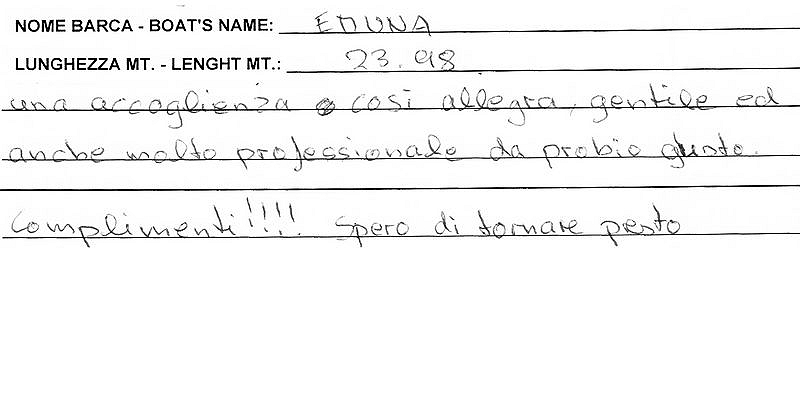 NOME BARCA - BOAT'S NAME: EDUNA
LUNGHEZZA MT. - LENGHT MT.: 23.98
una accoglienza così allegra, gentile ed
anche molto professionale da probio gusto.
Complimenti!!!! Spero di tornare presto